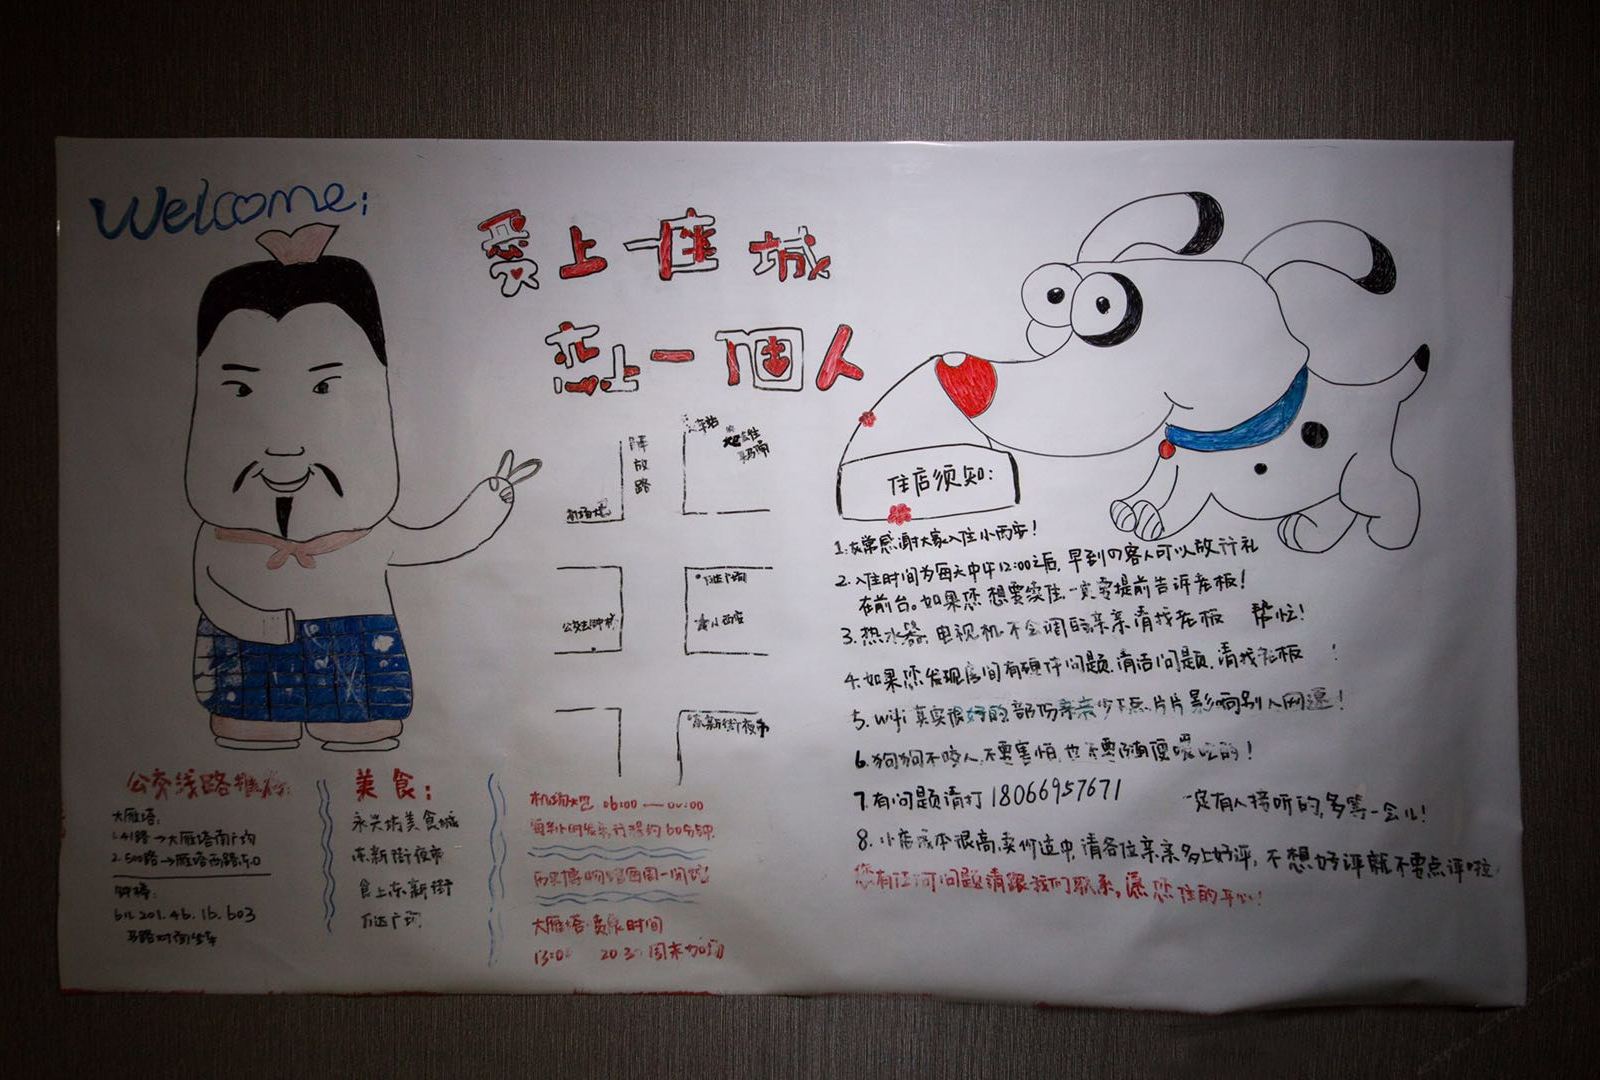 Welcome:
爱上一座城
恋上一個人
解放路
车站
机场大巴
万达广场
公交去钟楼
东新街夜市
住店须知:
1.非常感谢大家入住小西安!
2.入住时间为每天中午12:00之后,早到的客人可以放行礼
在前台。如果您想要续住,一定要提前告诉老板!
3.热水器,电视机不会调的亲亲请找老板 帮忙!
4.如果您发现房间有硬件问题,清洁问题,请找老板 !
5.wifi真实很好的,部份亲亲少下点片片影响别人网速!
6.狗狗不咬人,不要害怕,也不要随便喂吃的!
7.有问题请打18066957671 一定有人接听的,多等一会儿!
8.小店成本很高,卖价适中,请各位亲亲多上好评,不想好评就不要点评啦
您有任何问题请跟我们联系,愿您住的开心!
公交线路推荐:
大雁塔:
1.41路→大雁塔南广场
2.500路→雁塔西路东口
钟楼:
611.201.46.16.603
马路对面坐车
美食:
永兴坊美食城
东新街夜市
食上东新街
万达广场
机场大巴 06:00——00:00
每半小时发车,行程约60分钟.
历史博物馆周一闭馆
大雁塔音乐时间